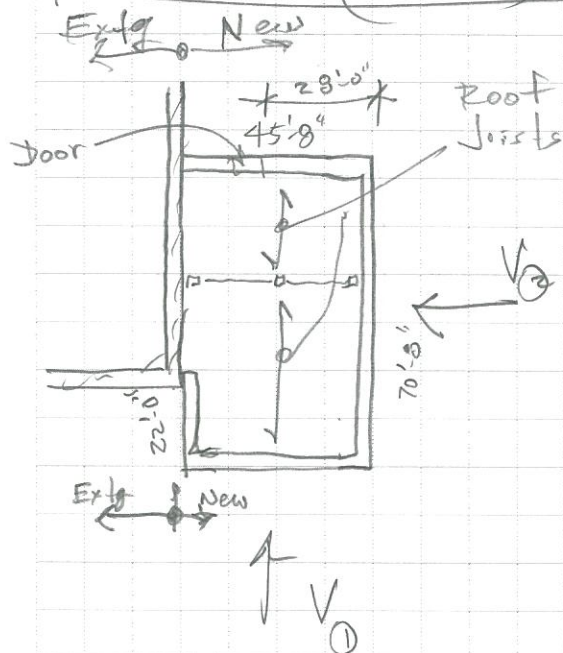 Extg New
28'-0"
45'-8"
Roof
Joists
Door
V②
70'-8"
22'-0"
Extg New
V①